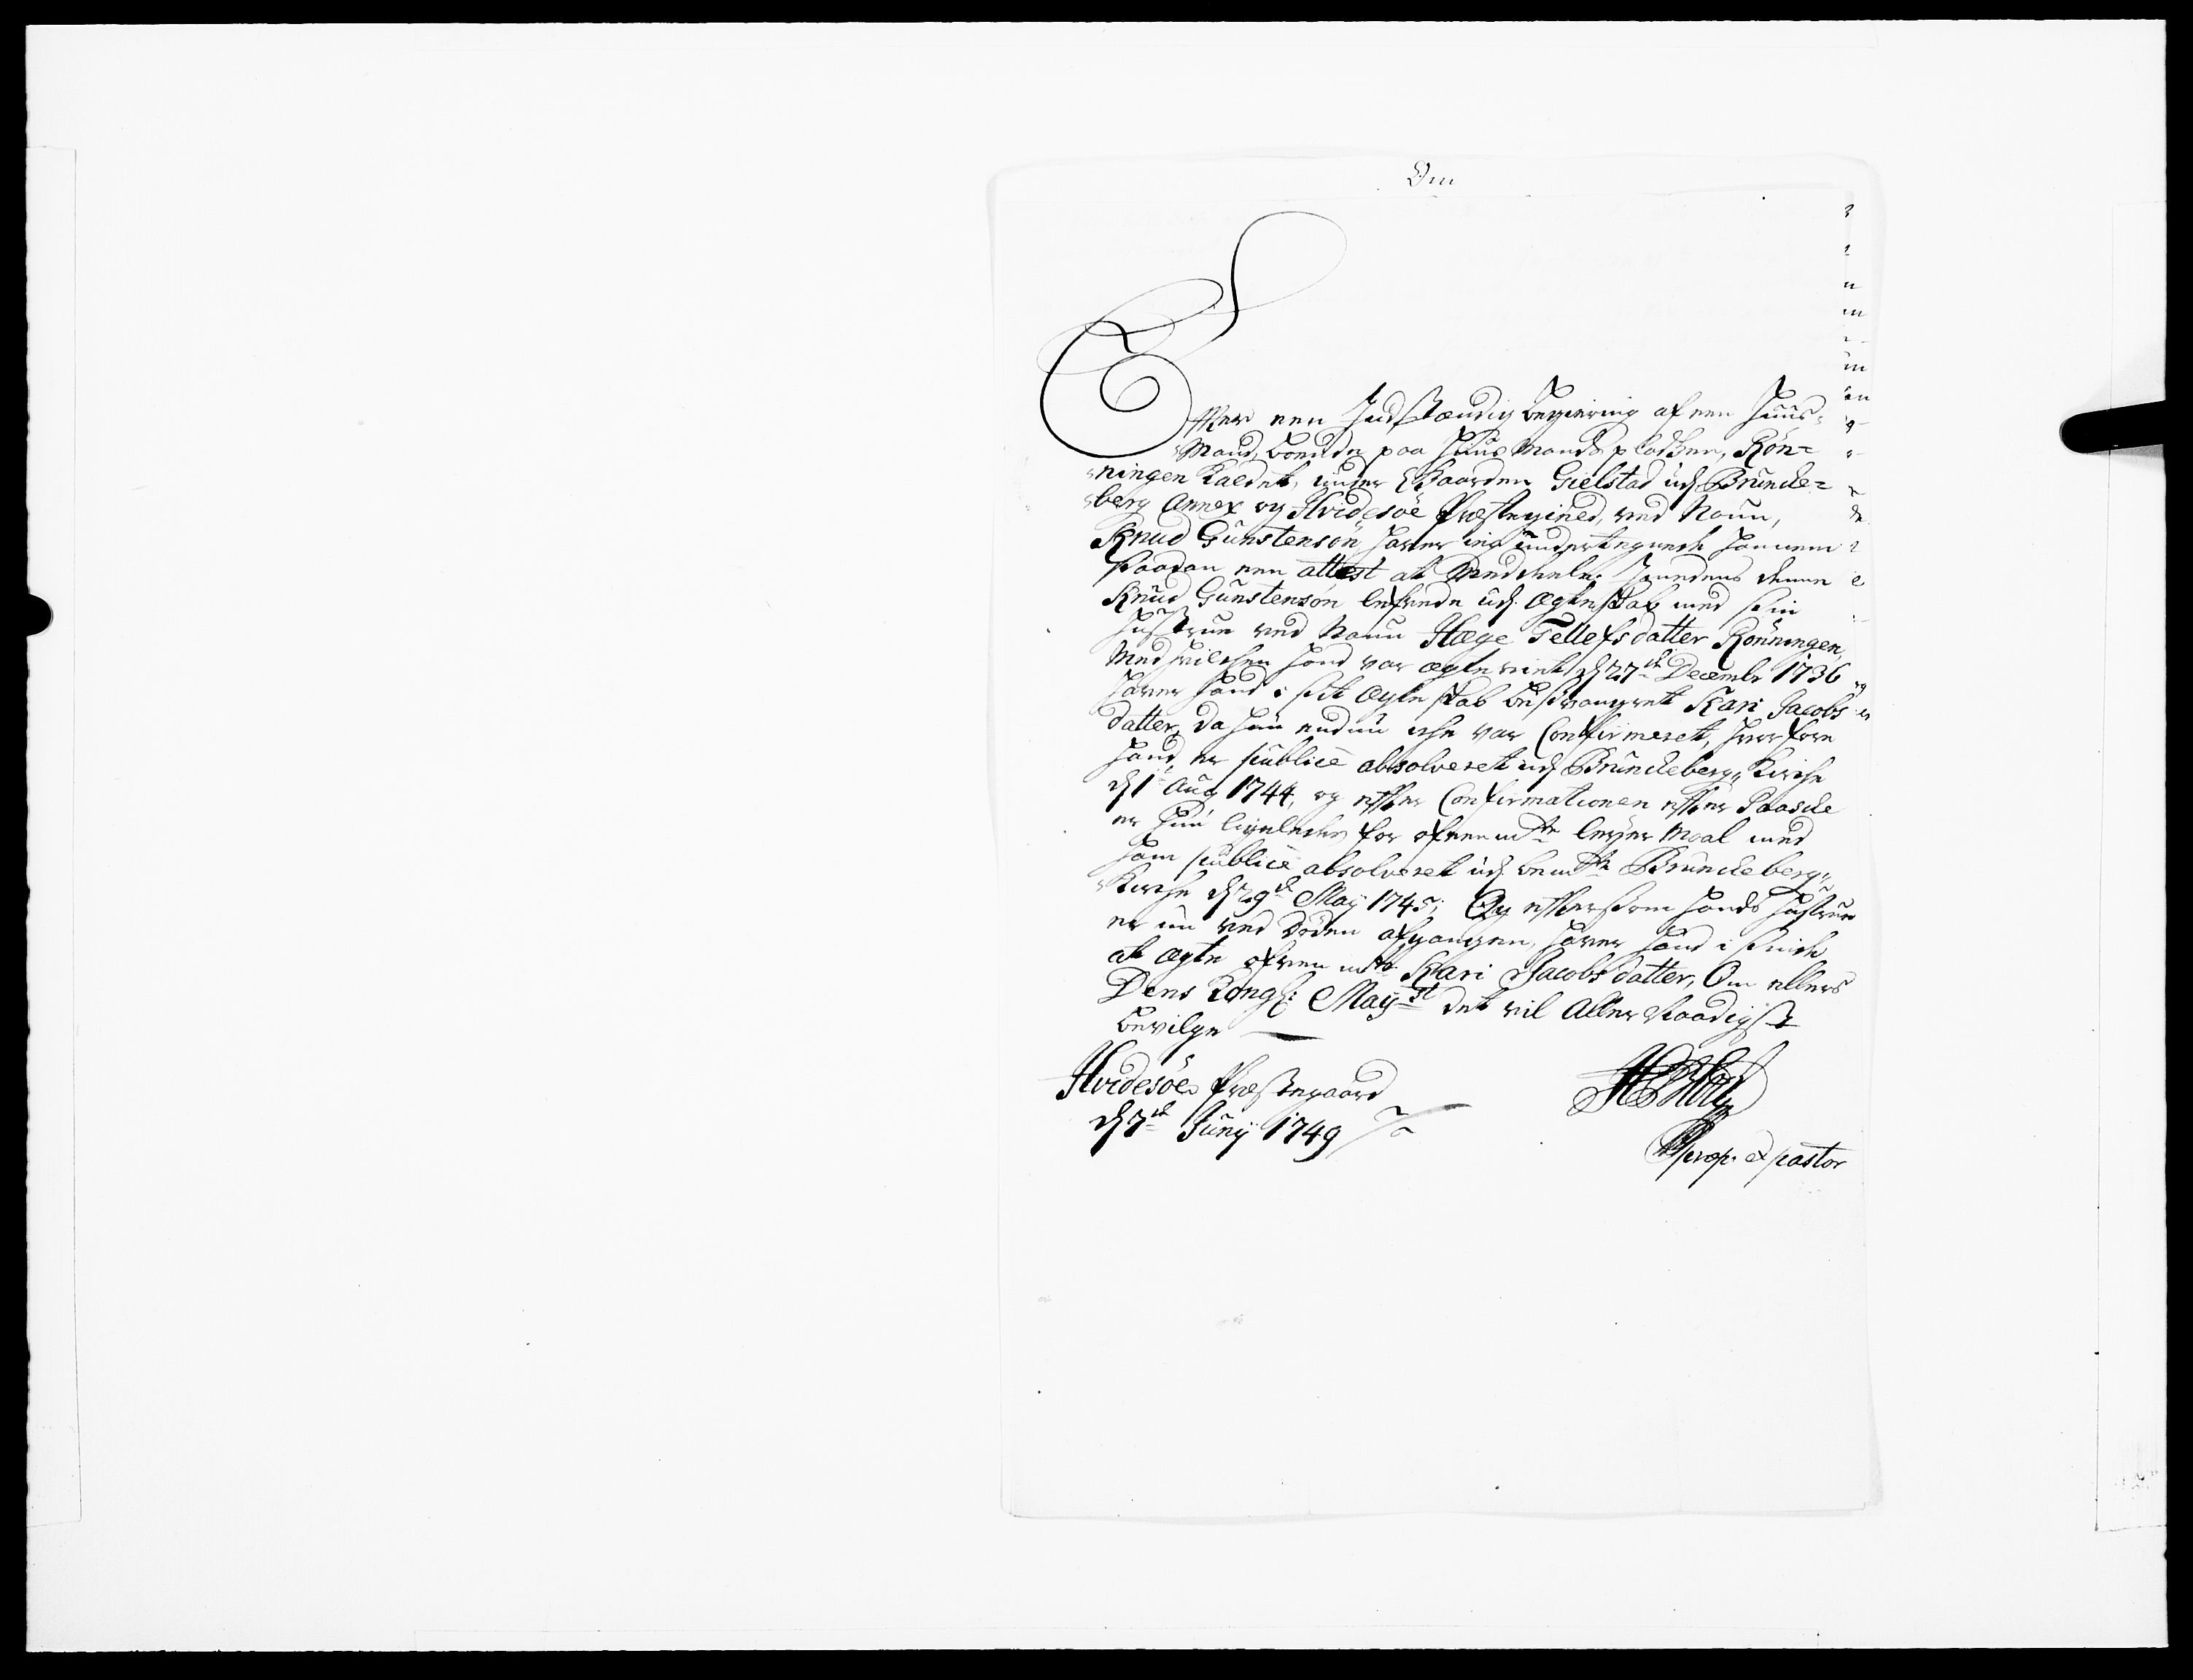 Om
Efter een Indstændig begiering af een Huus-
Mand, boende paa Huusmands pladsen, Røn-
ningen kaldet, under Gaarden Gielstad udj Brunche-
berg Annex og Hvidesøe Præstegield, ved Nafn,
Knud Gunstensøn, haver ieg undertegnede hannem
saadan een attest at Meddeele. Imedens denne
Knud Gunstensøn lefvede udj Ægteskab med sin
Hustrue ved Nafn Hæge Tellefsdatter Rønningen,
Med hvilchen hand var ægteviet d 27de Decembr 1736
haver hand i sit Ægteskab besvangret Kari Jacobs
datter, da hun endnu iche var Confirmeret, hvorfore
hand er publice absolveret udj Bruncheberg Kirche
d 1te Aug 1744, og efter Confirmationen efter Paasche
er hun ligeledes for ofvenmte leyermaal med
ham publice absolveret udj bemte Bruncheberg
Kirche d 29de May 1745; Og eftersom hands Hustrue
er nu ved Døden afgangen, haver hand i sinde
at ægte ofvenmte Kari Jacobsdatter, Om ellers
Dens Kongl: Mayst det vil Allernaadigst
bevilge
Hvidesøe Præstegaard
d 7de Junij 1749
præp. et pastor